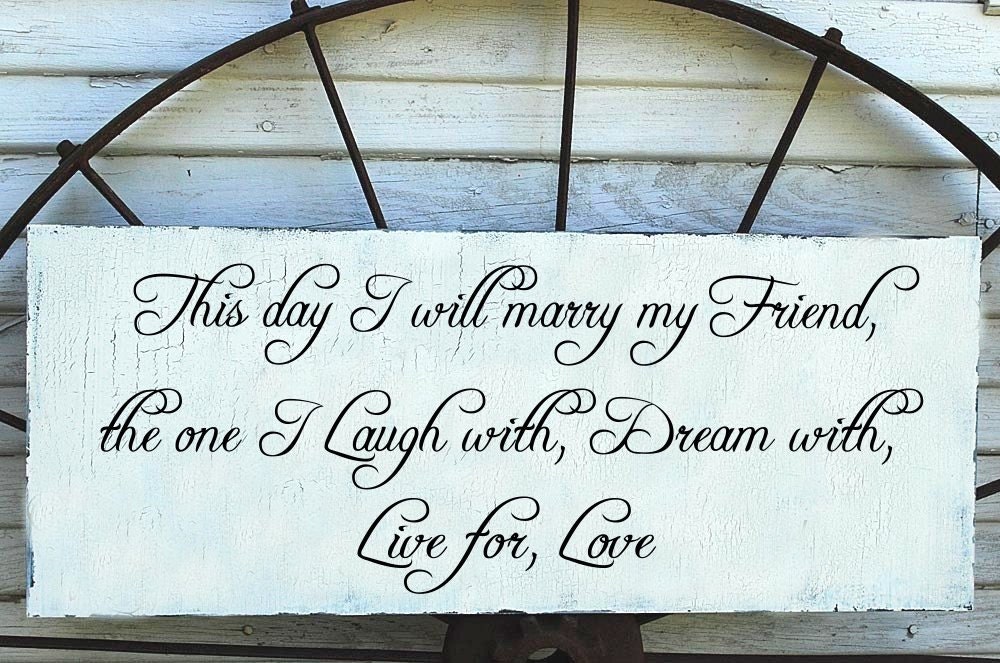 This day I will marry my Friend,
the one I Laugh with, Dream with,
Live for, Love